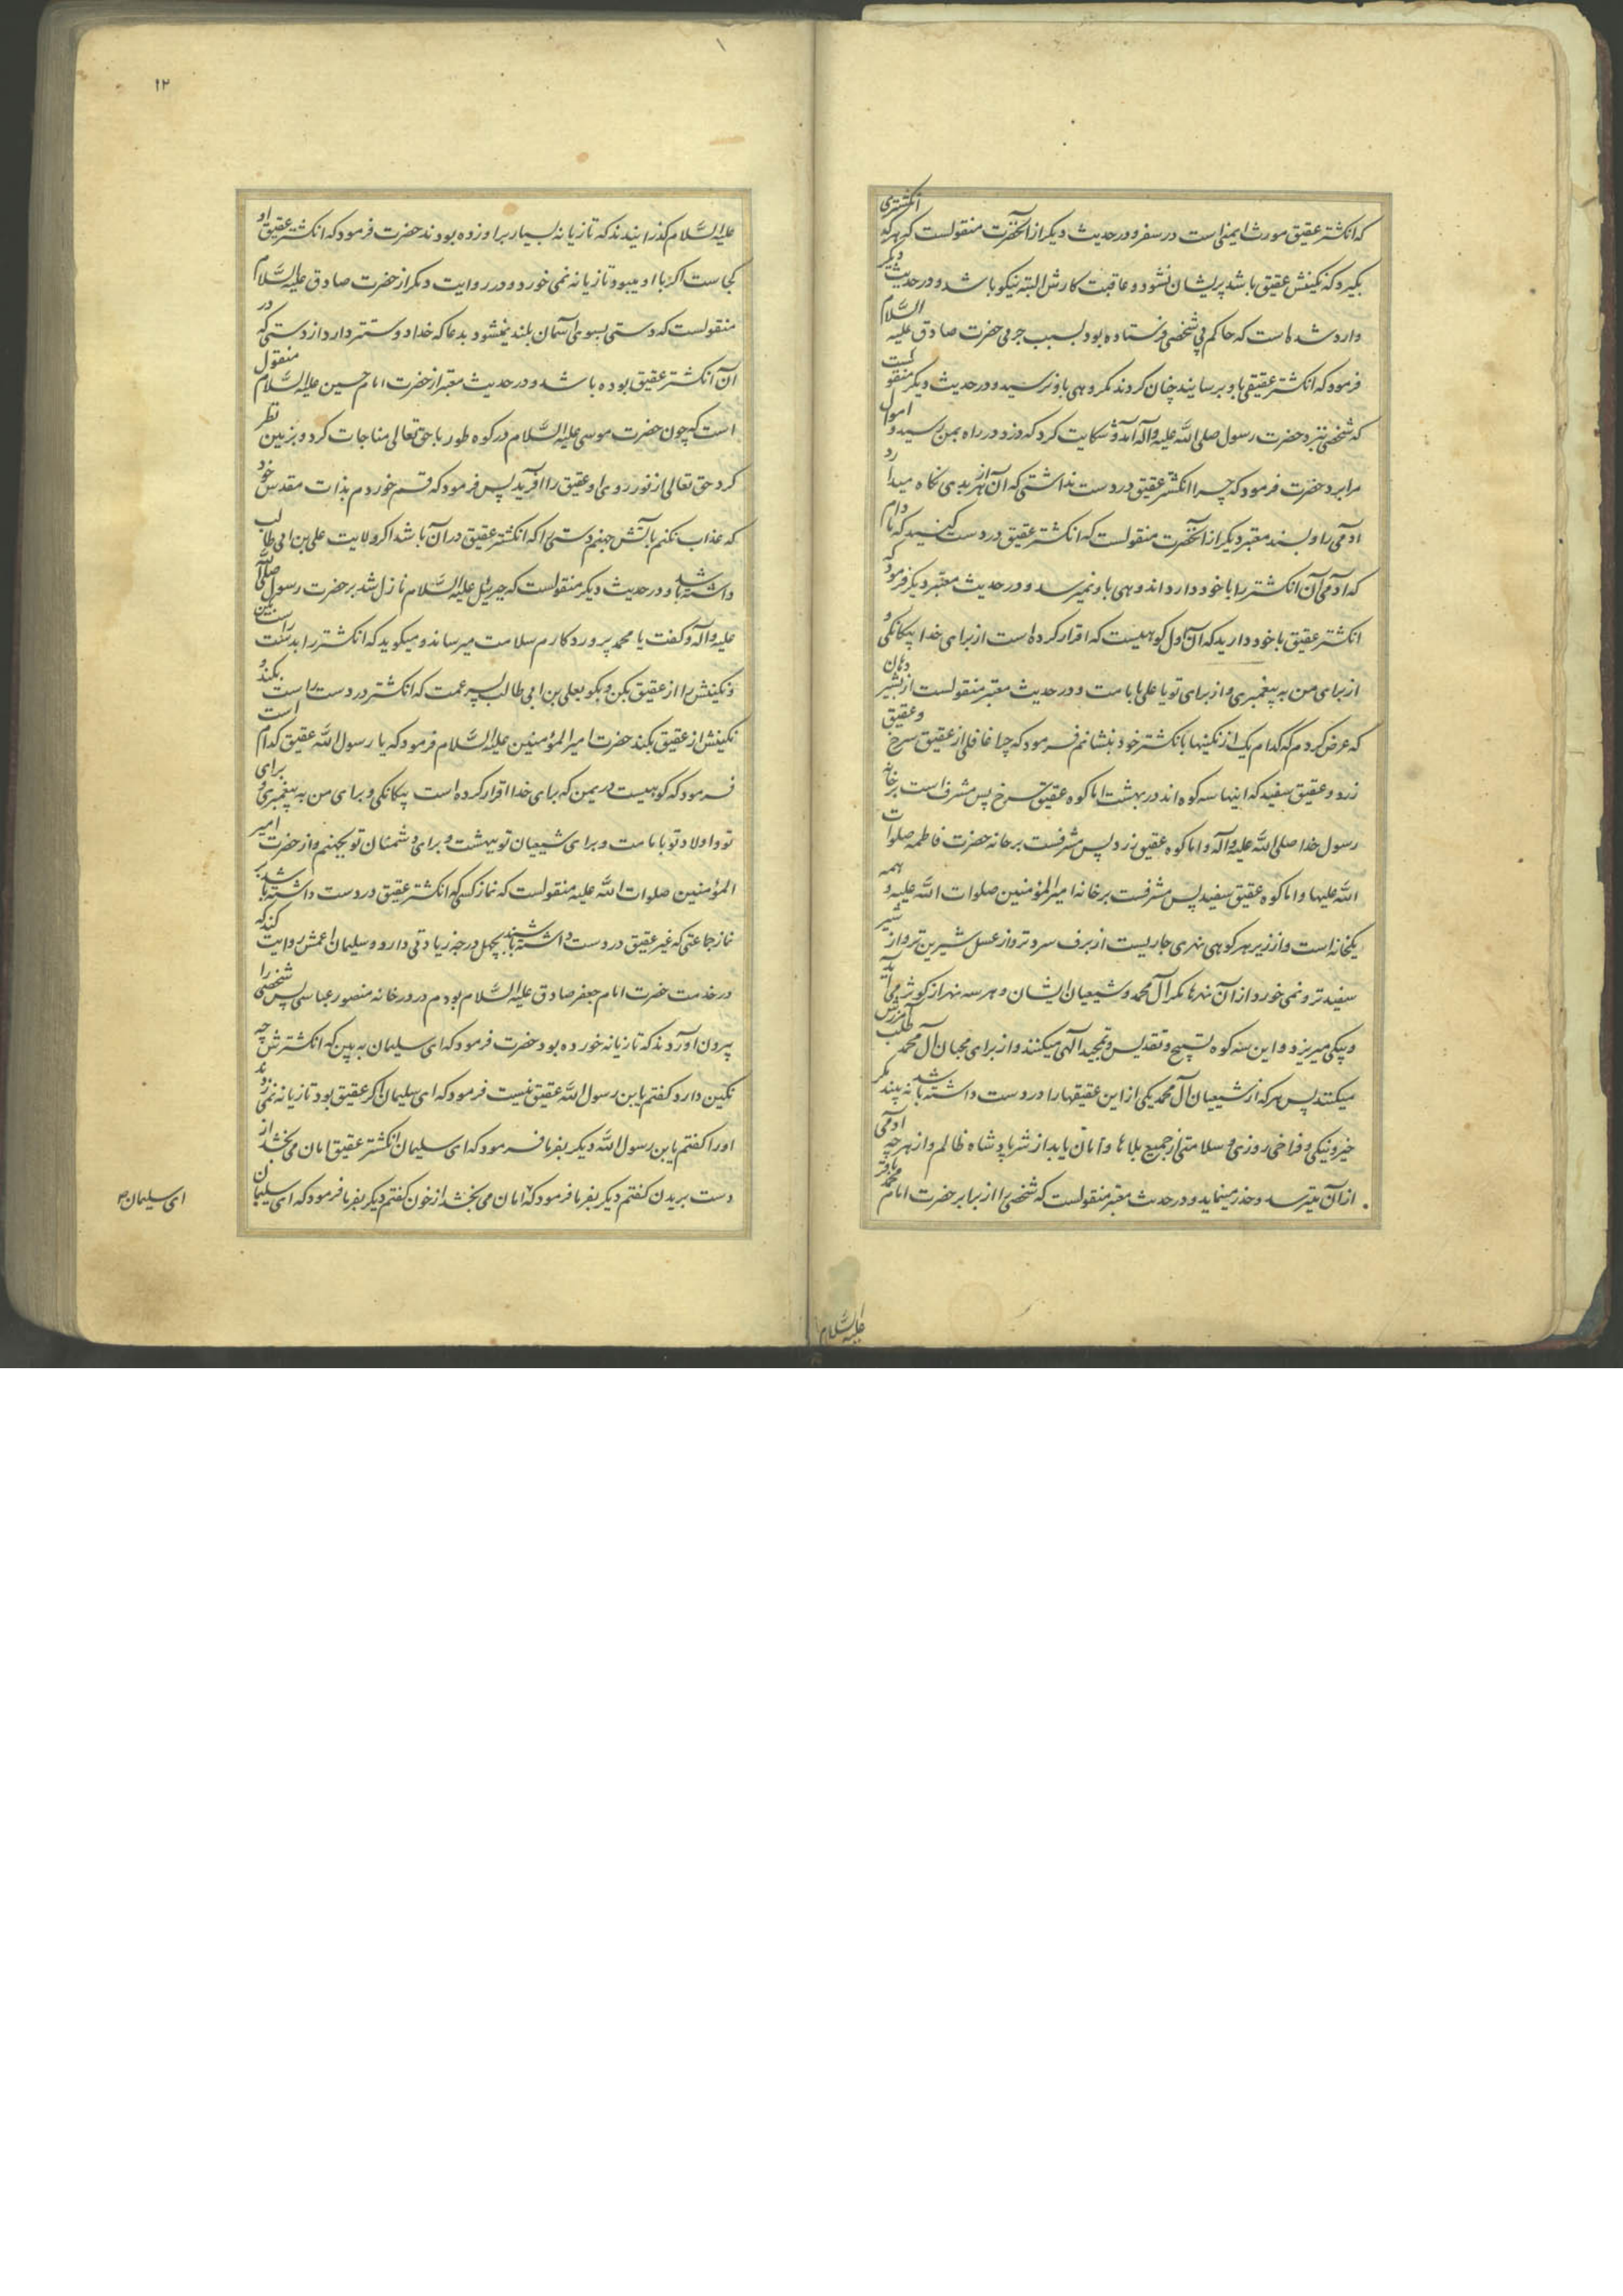 که انکشتر عقیق مورث ایمنی است در سفر و در حدیث دیکر از آنحضرت منقولست که هر که انکشتری
بکیرد که نکینش عقیق باشد پریشان نشود و عاقبت کارش البته نیکو باشد و در حدیث دیکر
وارد شده است که حاکم پی شخصی فرستاده بود بسبب جرمی حضرت صادق علیه السَّلام
فرمود که انکشتر عقیقی باو برسانید چنان کردند مکروهی باو نرسید و در حدیث دیکر منقولست
که شخصی بنزد حضرت رسول صلی اللّه علیه و آله آمد و شکایت کرد که دزد در راه بمن رسید و اموال
مرا برد حضرت فرمود که چرا انکشتر عقیق در دست نداشتی که آن از هر بدی نکاه میدارد
آدمی را و بسند معتبر دیکر از آنحضرت منقولست که انکشتر عقیق در دست کنید که مادام
که آدمی آن انکشتر را با خود دارد اندوهی باو نمیرسد و در حدیث معتبر دیکر فرمود که
انکشتر عقیق با خود دارید که آن اول کوهیست که اقرار کرده است از برای خدا بیکانکی و
از برای من به پیغمبری و از برای تو یا علی بامامت و در حدیث معتبر منقولست از بشیر دهان
که عرض کردم که کدام یک از نکینها بانکشتر خود بنشانم فرمود که چرا غافلی از عقیق سرخ و عقیق
زرد و عقیق سفید که اینها سه کوه اند در بهشت اما کوه عقیق سرخ پس مشرف است بر خانه
رسول خدا صلی اللّه علیه و آله و اما کوه عقیق زرد پس مشرفست بر خانه حضرت فاطمه صلوات
اللّه علیها و اما کوه عقیق سفید پس مشرفست بر خانه امیر المؤمنین صلوات اللّه علیه و همه
یکخانه است و از زیر هر کوهی نهری جاریست از برف سردتر و از عسل شیرین تر و از شیر
سفیدتر و نمی خورد از آن نهرها مکر آل محمد و شیعیان ایشان و هر سه نهر از کوثر می آید
و بیکی میریزد و این سه کوه تسبیح و تقدیس و تمجید آلهی میکنند و از برای محبان آل محمد طلب آمرزش
میکنند پس هر که از شیعیان آل محمد یکی از این عقیقها را در دست داشته باشد نه بیند مکر
خیر و نیکی و فراخی روزی و سلامتی از جمیع بلاها و امان یابد از شر پادشاه ظالم و از هر چه آدمی
از آن میترسد و حذر مینماید و در حدیث معتبر منقولست که شخصی را از برابر حضرت امام محمد باقر
علیه السَّلام
۱۲
علیه السَّلام کذرانیدند که تازیانه بسیار بر او زده بودند حضرت فرمود که انکشتر عقیق او
کجاست اکر با او میبود تازیانه نمی خورد و در روایت دیکر از حضرت صادق علیه السَّلام
منقولست که دستی بسوی آسمان بلند نمیشود بدعا که خدا دوستتر دارد از دستی که در
آن انکشتر عقیق بوده باشد و در حدیث معتبر از حضرت امام حسین علیه السَّلام منقول
است که چون حضرت موسی علیه السَّلام در کوه طور با حق تعالی مناجات کرد و بزمین نظر
کرد حق تعالی از نور روی او عقیق را آفرید پس فرمود که قسم خوردم بذات مقدس خود
که عذاب نکنم بآتش جهنم دستی را که انکشتر عقیق در آن باشد اکر ولایت علی بن ابی طالب
داشته باشد و در حدیث دیکر منقولست که جبرئیل علیه السَّلام نازل شد بر حضرت رسول صلی اللّه
علیه و آله و کفت یا محمد پروردکارم سلامت میرساند و میکوید که انکشتر را بدست راست بکن
و نکینش را از عقیق بکن و بکو بعلی بن ابی طالب پسر عمت که انکشتر در دست راست بکند و
نکینش از عقیق بکند حضرت امیر المؤمنین علیه السَّلام فرمود که یا رسول اللّه عقیق کدام است
فرمود که کوهیست در یمن که برای خدا اقرار کرده است بیکانکی و برای من به پیغمبری و برای
تو و اولاد تو بامامت و برای شیعیان تو ببهشت و برای دشمنان تو بجهنم و از حضرت امیر
المؤمنین صلوات اللّه علیه منقولست که نماز کسی که انکشتر عقیق در دست داشته باشد بر
نماز جماعتی که غیر عقیق در دست داشته باشند بچهل درجه زیادتی دارد و سلیمان اعمش روایت کند که
در خدمت حضرت امام جعفر صادق علیه السَّلام بودم در در خانه منصور عباسی پس شخصی را
بیرون آوردند که تازیانه خورده بود حضرت فرمود که ای سلیمان به بین که انکشترش چه
نکین دارد کفتم یابن رسول اللّه عقیق نیست فرمود که ای سلیمان اکر عقیق بود تازیانه نمی زدند
او را کفتم یابن رسول اللّه دیکر بفرما فرمود که ای سلیمان انکشتر عقیق امان می بخشد از
دست بریدن کفتم دیکر بفرما فرمود که امان می بخشد از خون کفتم دیکر بفرما فرمود که ای سلیمان
ای سلیمان